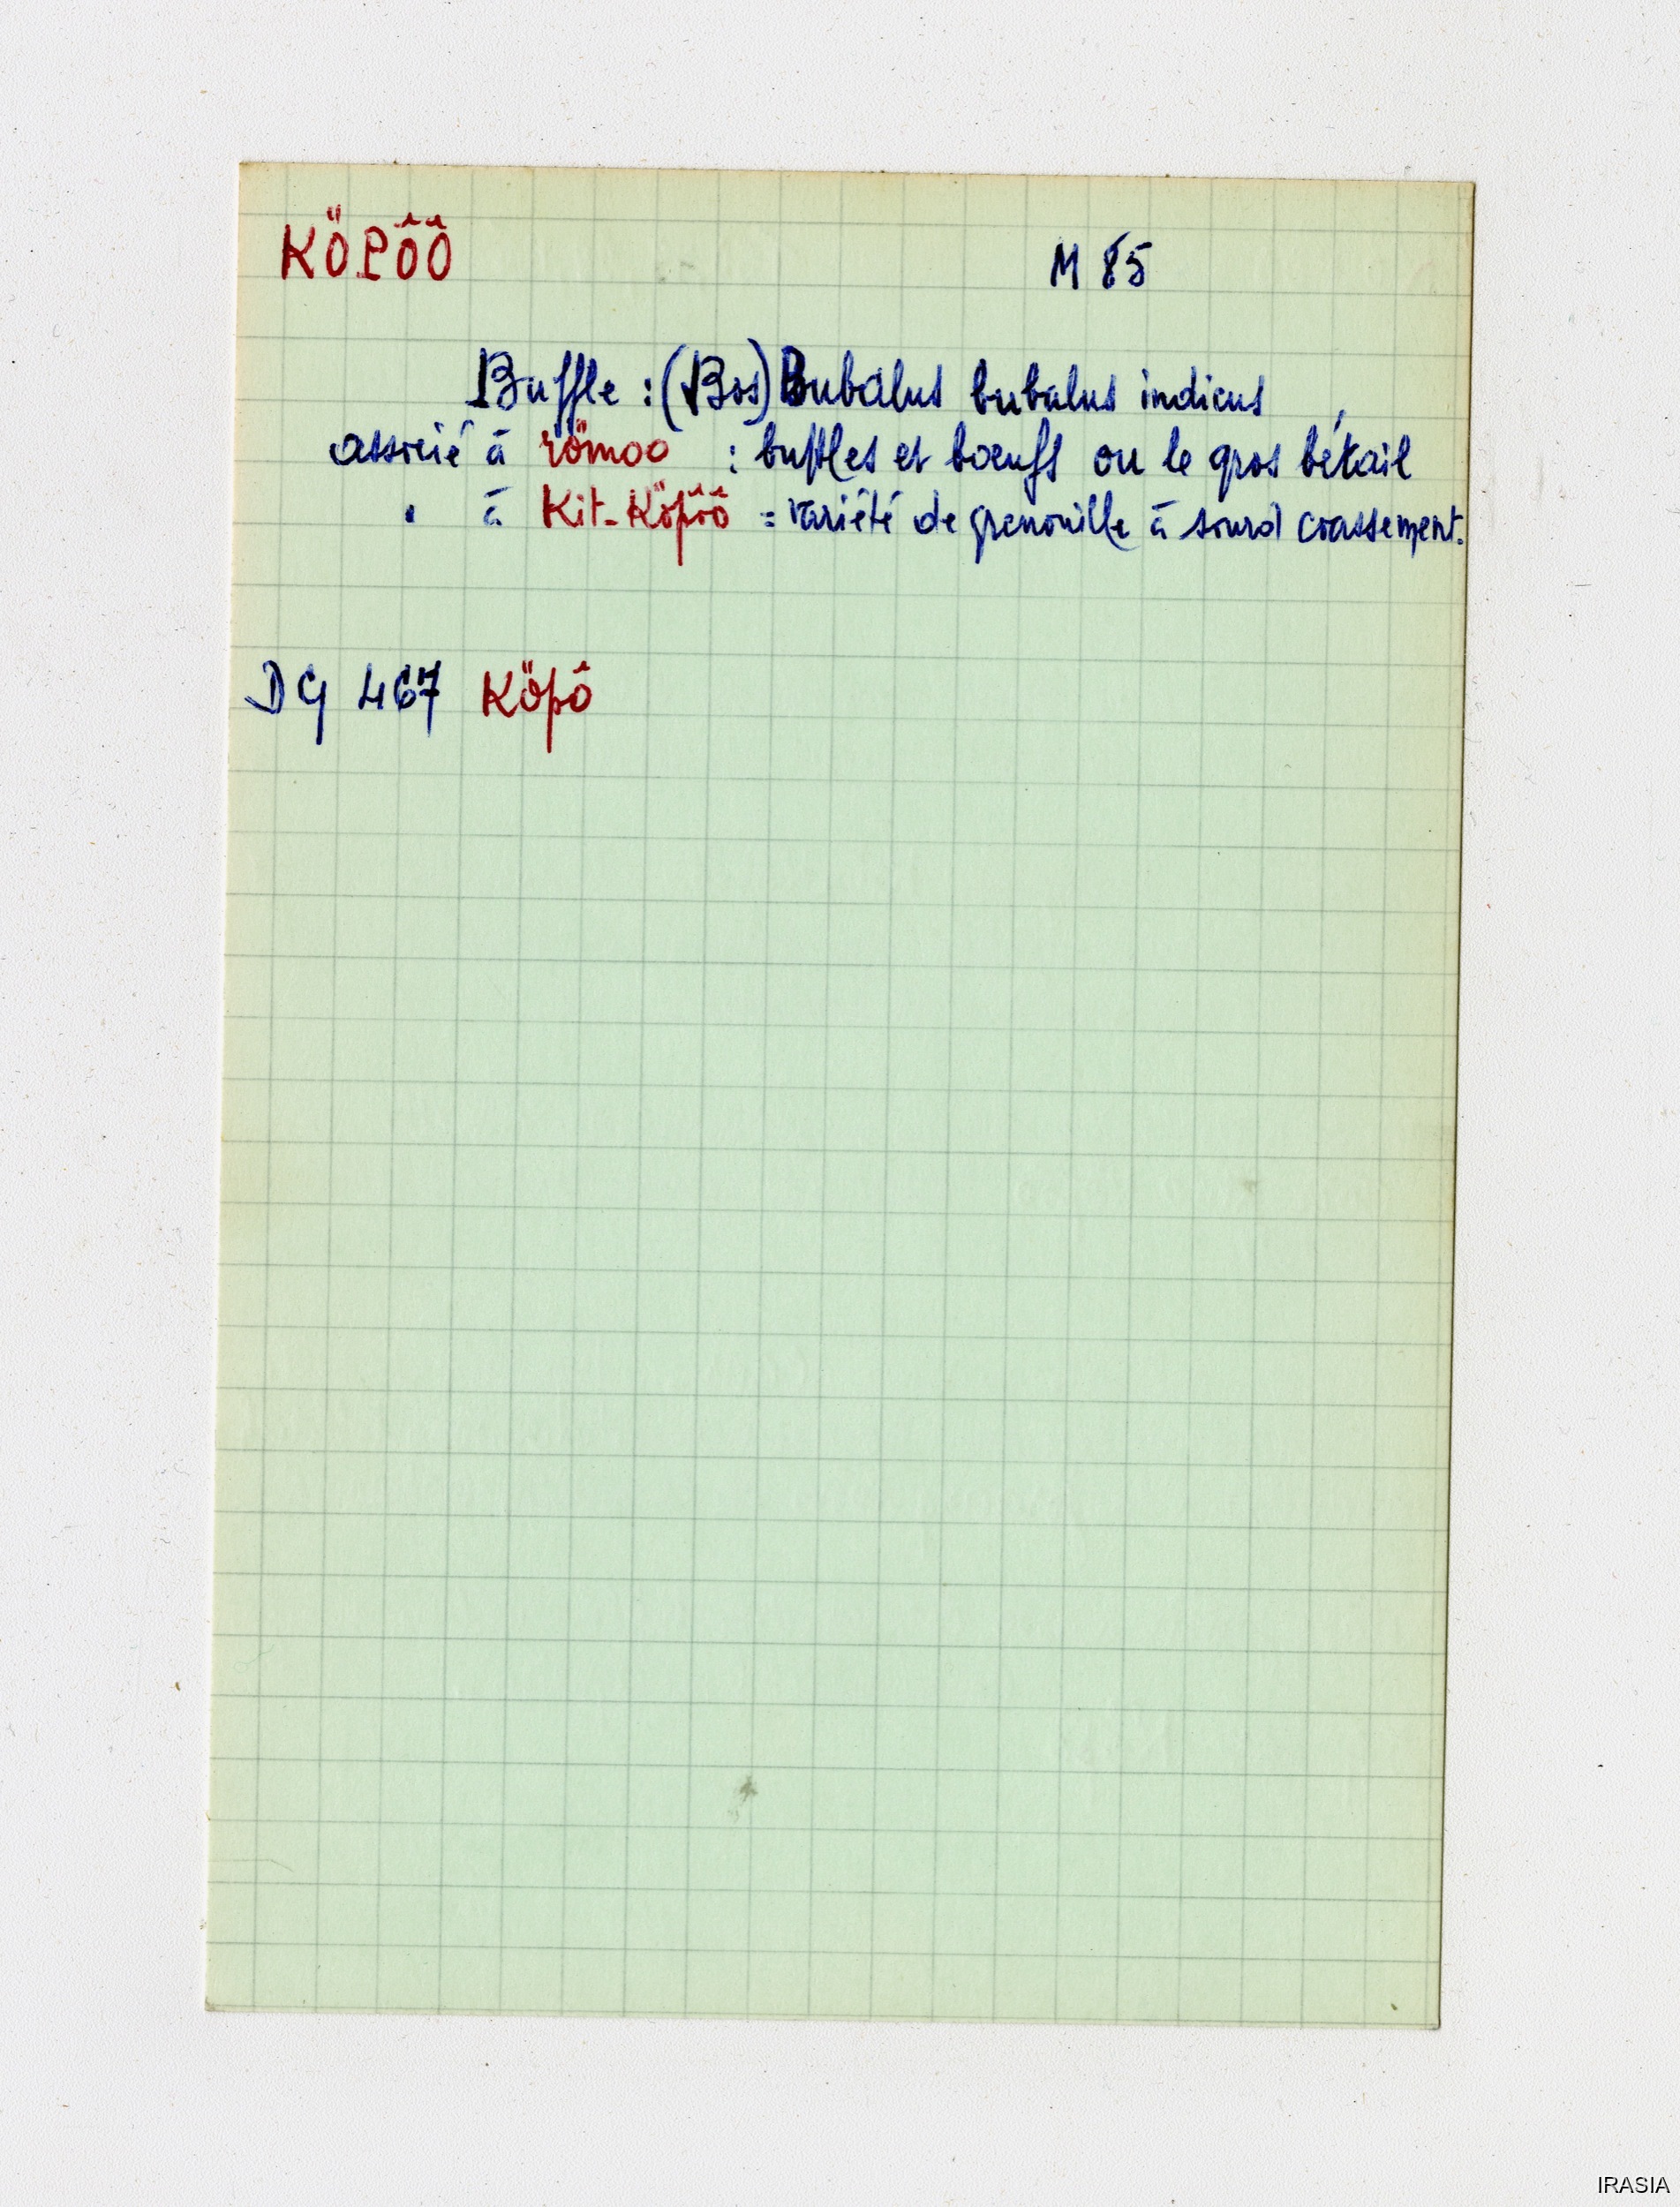 KÖPÔÔ M 85
Buffle : (Bos) Bubalus bubalus indicus
associé à römoo : buffles et bœufs ou le gros bétail
" à Kit-Köpôô = variété de grenouille à sourd coassement.
DG 467 Köpô
IRASIA